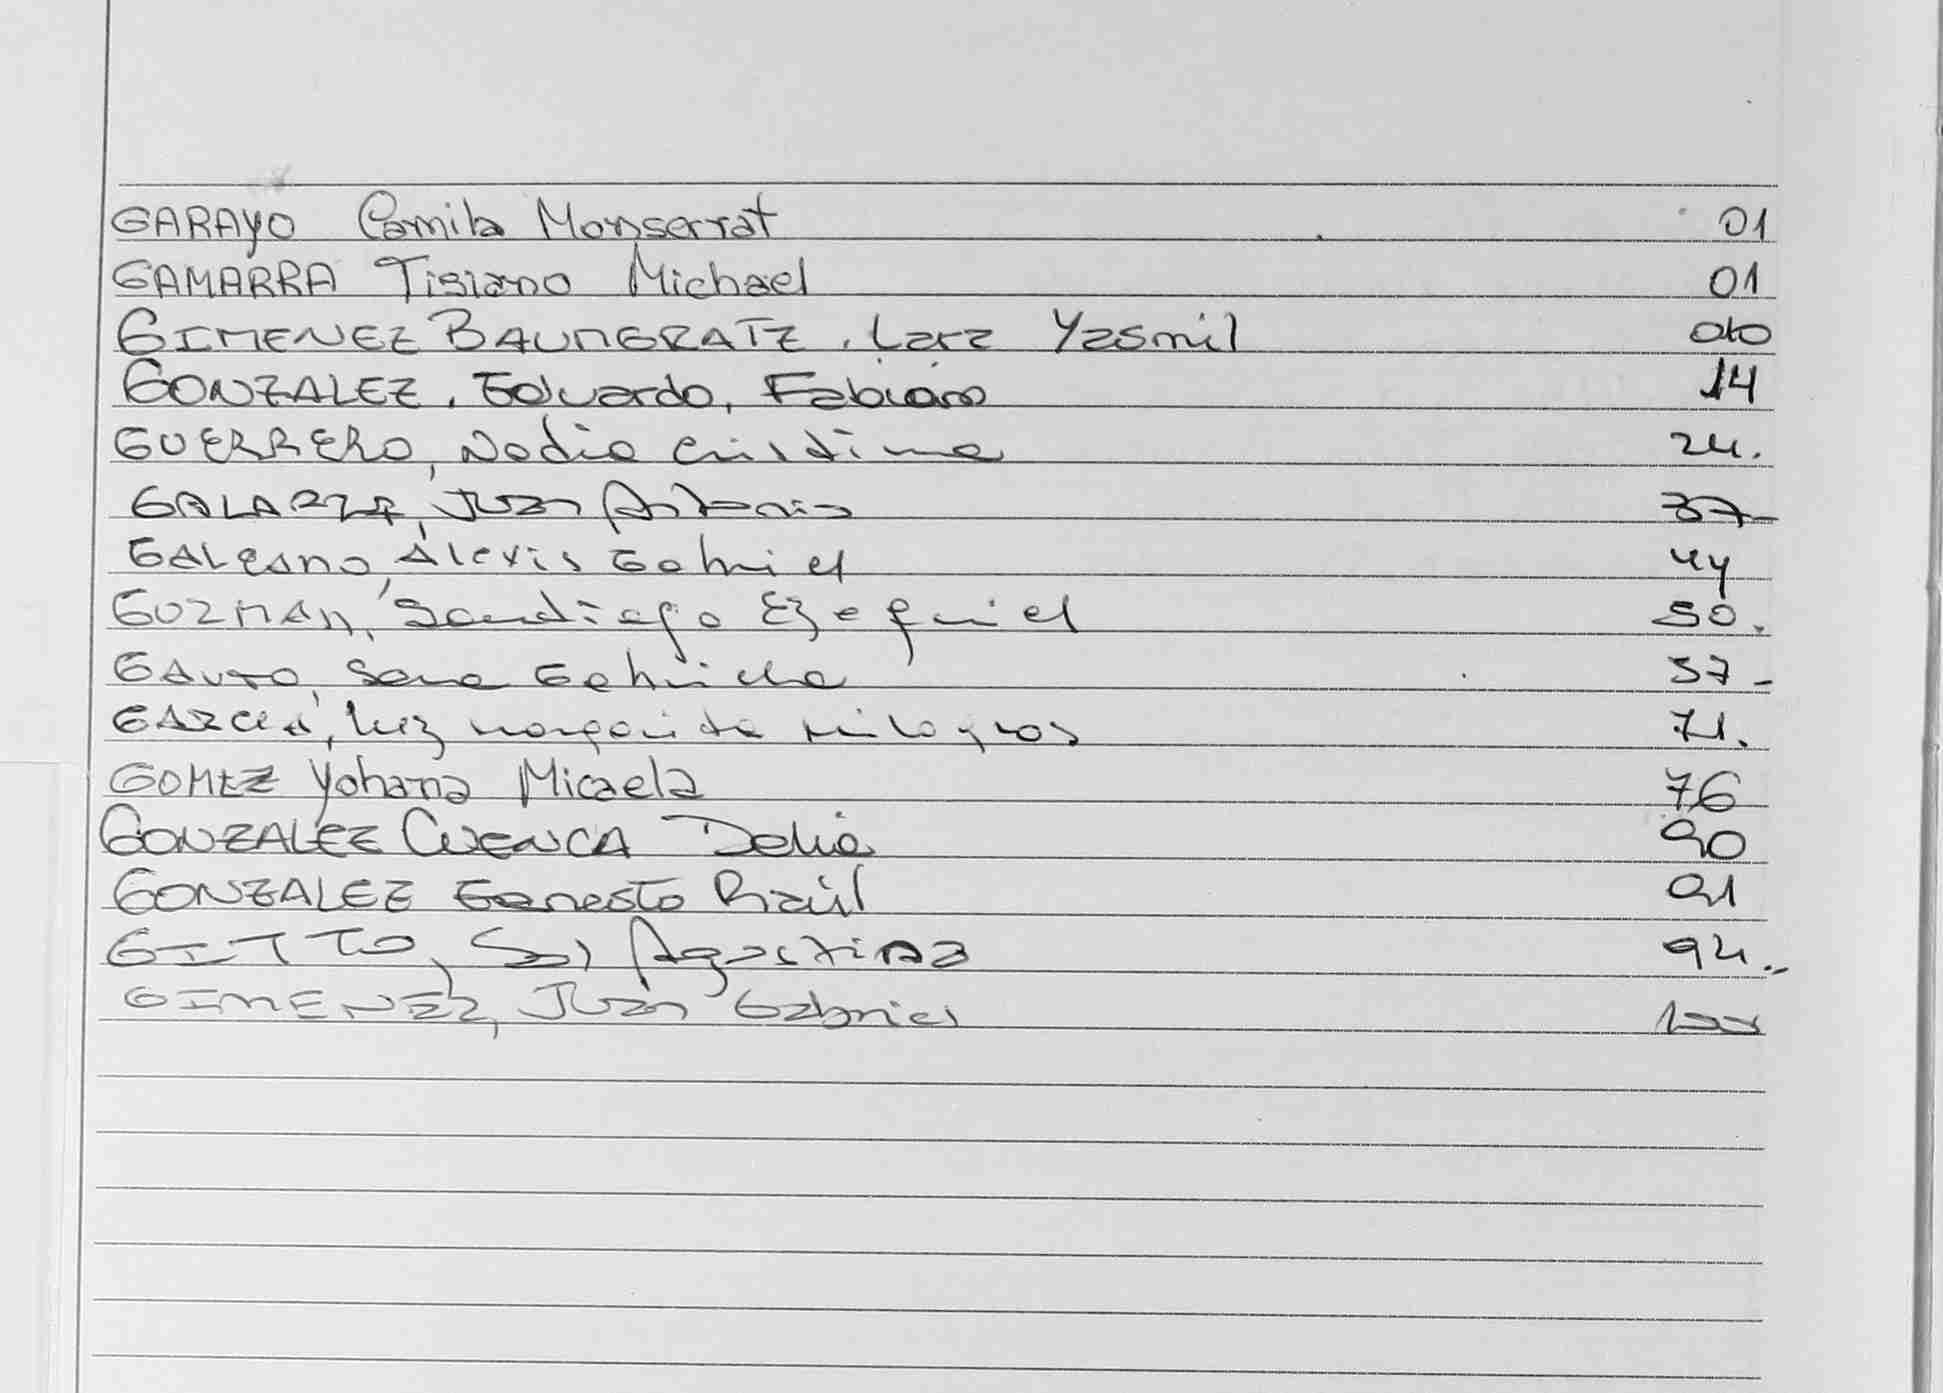 GARAYO Camila Monserrat 01
GAMARRA Tisiano Michael 01
GIMENEZ BAUMGRATZ, Lara Yasmil
GONZALEZ, Eduardo, Fabian 14
GUERRERO, Nadia Cristina 24.
GALARZA, Juan Antonio 37-
GALEANO, Alexis Gabriel 44
GUZMAN, Santiago Ezequiel 50.
GAUTO, Sara Gabriela 57-
GARCIA, Luz Margarita Milagros 71.
GOMEZ Yohana Micaela 76
GONZALEZ CUENCA Delia 90
GONZALEZ Ernesto Raúl 91
GITTO, Sol Agostina 94..
GIMENEZ, Juan Gabriel 100